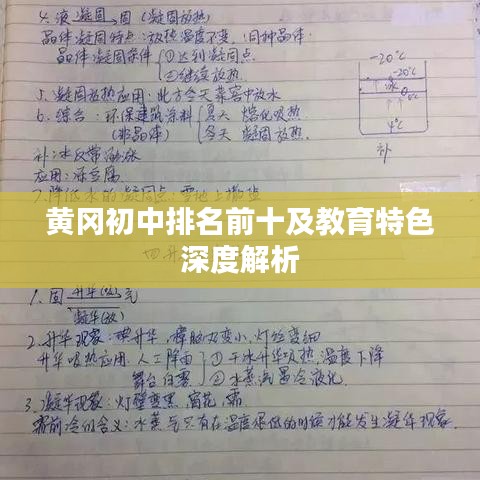 4. 液 凝固 → 固 (凝固放热)
晶体凝固特点：放热温度不变，同种晶体：
晶体凝固条件 ①达到凝固点
②继续放热
5. 凝固放热应用：北方冬天菜窖中放水
6. 综合：环保建筑涂料 夏天 熔化吸热
(非晶体) 冬天 凝固放热.
补：水反常膨胀
应用：
7. 降低水的凝固点 雪地上撒盐
-20℃
-20℃
冰
0℃
4℃
补
黄冈初中排名前十及教育特色
深度解析
1. 固 升华(吸) 气
凝华(放)
2. 升华现象：碘升华，樟脑丸变小，灯丝变细
升华吸热应用：人工降雨 ①干冰升华吸热，温度下降
舞台白雾 ②水蒸气遇冷液化.
3. 凝华现象：灯壁变黑，窗花，霜
霜前冷的含义：水蒸气只有在温度很低的时候才能发生凝华现象.